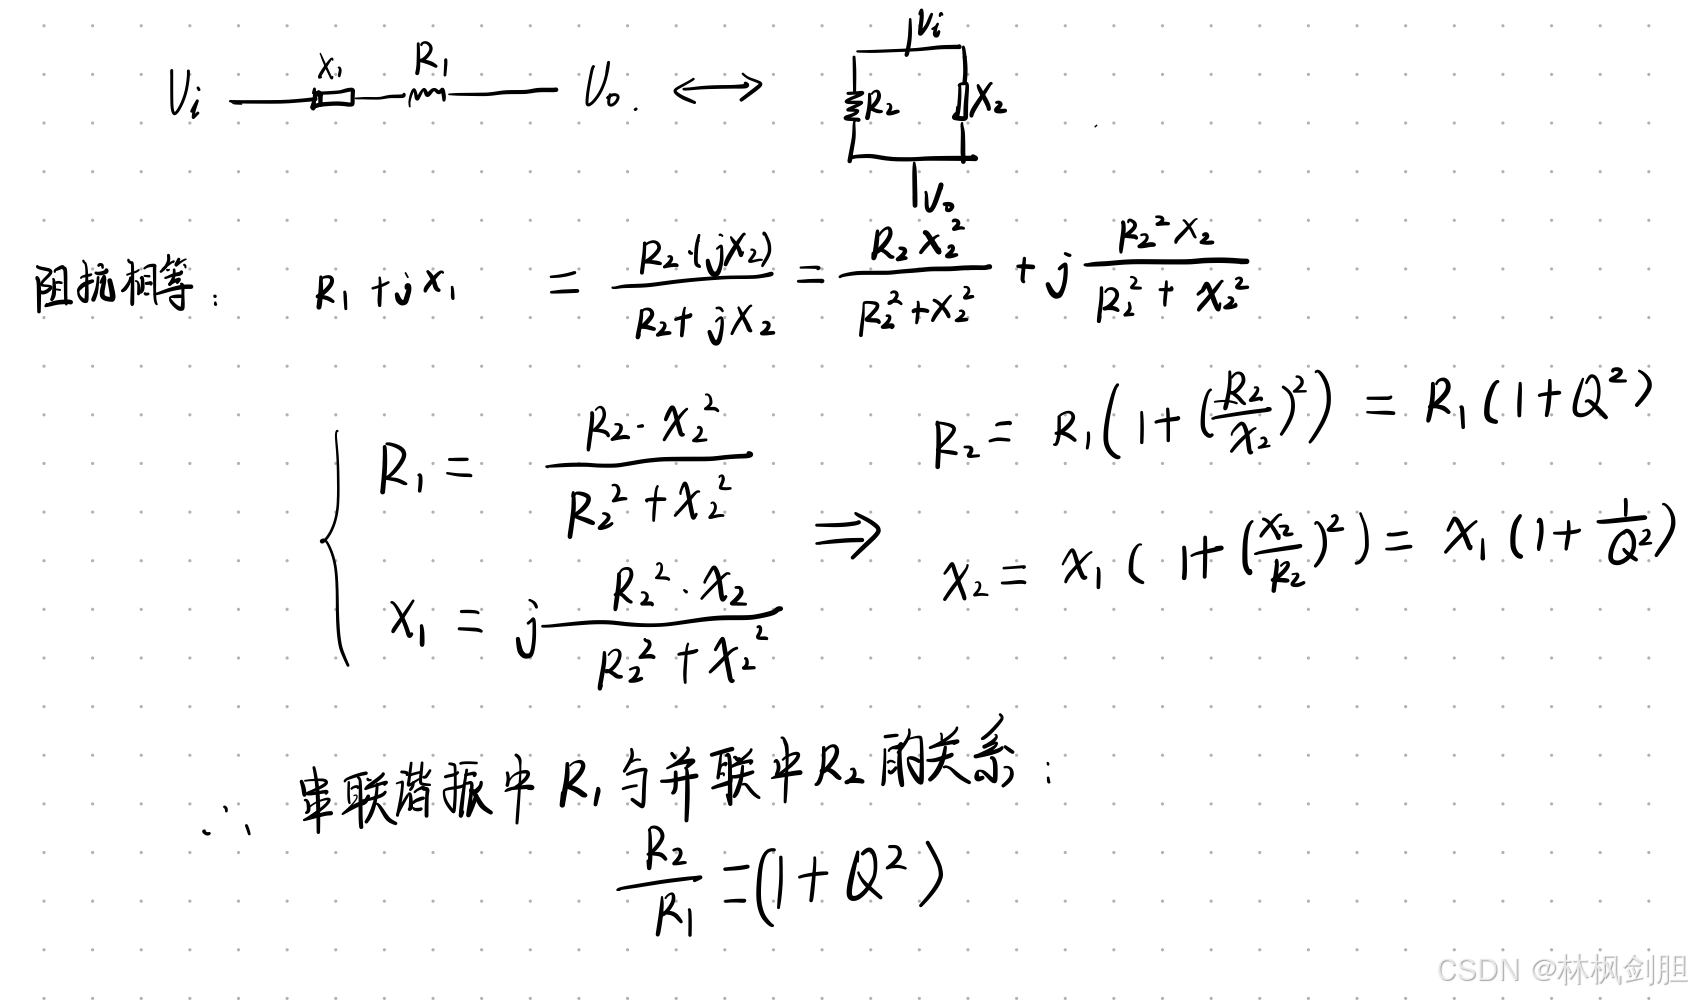 Vi X₁ R₁ Vo. ⟷ Vi R₂ X₂ Vo
阻抗相等: R₁ + jX₁ = R₂·(jX₂) / (R₂ + jX₂) = R₂X₂² / (R₂² + X₂²) + j R₂²X₂ / (R₂² + X₂²)
R₁ = R₂·X₂² / (R₂² + X₂²) ⇒ R₂ = R₁(1 + (R₂/X₂)²) = R₁(1 + Q²)
X₁ = j R₂²·X₂ / (R₂² + X₂²) X₂ = X₁(1 + (X₂/R₂)²) = X₁(1 + 1/Q²)
∴ 串联谐振中 R₁ 与并联中 R₂ 的关系:
R₂/R₁ = (1 + Q²)
CSDN @林枫剑胆